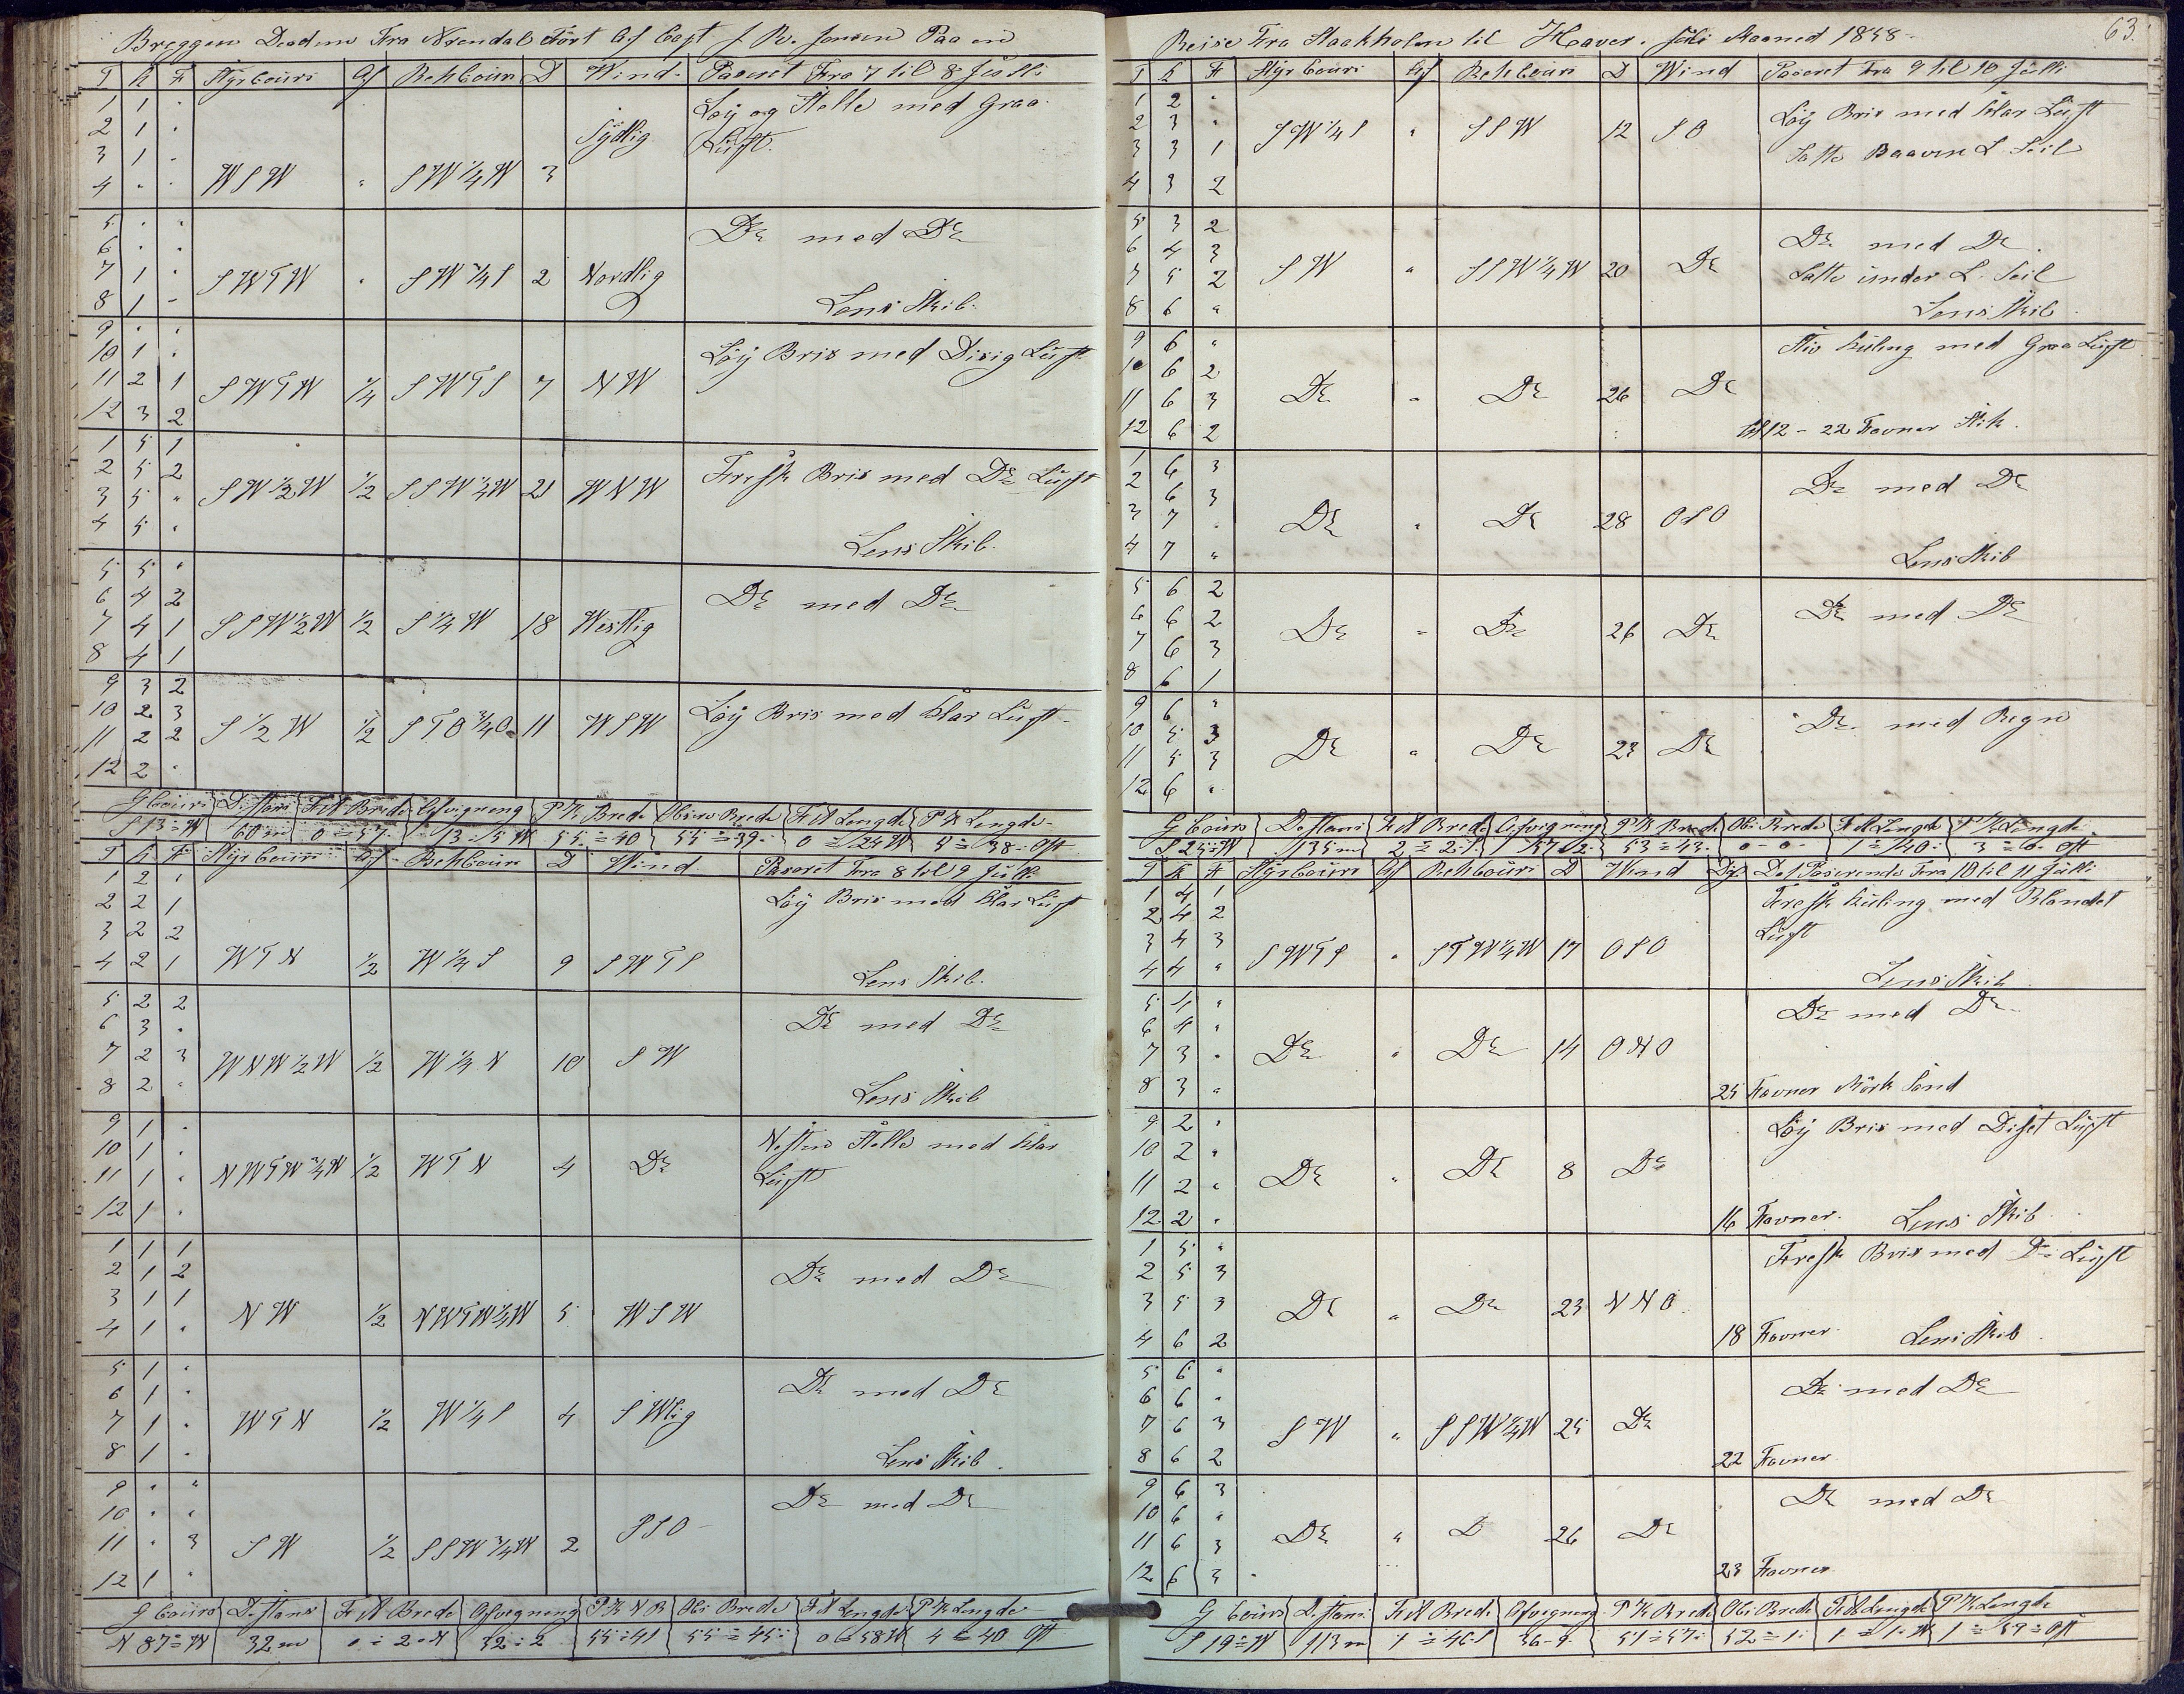 Breggen Fra Arendal Fört Af Capt J Paa en
T K F Styr Cours Af Beh Cours D Wind Paseret Fra 7 til 8 Julli
1 1 " Löy og Stelle med Graa
2 1 " Sydlig Luft.
3 1 "
4 " " WSW " SW 1/4 W 3
5 " " Do med Do
6 " "
7 1 " SWTW " SW 3/4 S 2 Nordlig
8 1 " Lens Skib.
9 " "
10 1 " Löy Bris med Disig Luft
11 2 1 SWTW 1/4 SWTS 7 NW
12 3 2
1 5 1
2 5 2 Fresk Bris med Do Luft
3 5 " SW 1/2 W 1/2 SSW 1/4 W 21 WNW
4 5 " Lens Skib.
5 5 "
6 4 2 Do med Do
7 4 1 SSW 1/2 W 1/2 S 1/4 W 18 Westlig
8 4 1
9 3 2
10 2 3 Löy Bris med klar Luft
11 2 2 S 1/2 W 1/2 STO 3/4 O 11 WSW
12 2 "
G Cours Distans F A Brede Afvigning P K Brede Obs Brede F A Lengde P K Lengde
S 13 W 60 m 0 57 13 5 W 55 40 55 39 0 24 W 5 38 Ost
T K F Styr Cours Af Beh Cours D Wind Paseret Fra 8 til 9 Julli
1 2 " Löy Bris med klar Luft
2 2 1
3 2 2
4 2 1 WTN 1/2 W 1/4 S 9 SWTS Lens Skib.
5 2 2
6 3 " Do med Do
7 2 3 WNW 1/2 W 1/2 W 1/4 N 10 SW
8 2 " Lens Skib
9 1 "
10 1 " Nesten Stelle med klar
11 1 " NWTW 3/4 W 1/2 WTN 4 Do Luft
12 1 "
1 1 1
2 1 2 Do med Do
3 1 1 NW 1/2 NWTW 1/4 W 5 WSW
4 1 "
5 1 "
6 1 " Do med Do
7 1 " WTN 1/2 W 1/4 S 4 SWlig
8 1 " Lens Skib.
9 " "
10 " " Do med Do
11 " 3 SW 1/2 SSW 3/4 W 2 SSO
12 1 "
G Cours Distans F A Brede Afvigning P K N B Obs Brede F A Lengde P K Lengde
N 87 W 32 m " 2 N 32 2 55 41 55 45 0 58 W 4 40 Ost
63.
Reise Fra Staakholm til Haver. Juli Maaned 1858
T K F Styr Cours Af Beh Cours D Wind Paseret Fra 9 til 10 Julli
1 2 " Löy Bris med klar Luft
2 3 " SW 1/4 S " SSW 12 SO
3 3 1 Satte Baaven L. Seil
4 3 2
5 3 2 Do med Do
6 4 3 SW " SSW 1/4 W 20 Do
7 5 2 Satte under L. Seil
8 6 " Lens Skib
9 6 " Stiv Kuling med Graa Luft
10 6 2
11 6 3 Do " Do 26 Do
12 6 2 Kl 12 - 22 Favner Stik.
1 6 3
2 6 3 Do med Do
3 7 " Do " Do 28 OSO
4 7 " Lens Skib
5 6 2
6 6 2 Do " Do 26 Do Do med Do
7 6 3
8 6 1
9 6 "
10 5 3 Do med Regn
11 5 3 Do " Do 23 Do
12 6 "
G Cours Distans F A Brede Afvigning P K Brede Obs Brede F A Lengde P K Lengde
S 25 W 135 m 2 2 S 57 2 53 43 0-0- 1 40 3 0 Ost
T K F Styr Cours Af Beh Cours D Wind Dyb Det Paserende Fra 10 til 11 Julli
1 4 1 Fresk Kuling med Blandet
2 4 2 Luft
3 4 3 SWTS " STW 1/4 W 17 OSO
4 4 " Lens Skib
5 4 " Do med Do
6 4 "
7 3 " Do " Do 14 ONO
8 3 " 25 Favner Mörk Sand
9 2 " Löy Bris med Diset Luft
10 2 "
11 2 " Do " Do 8 Do
12 2 " 16 Favner. Lens Skib
1 5 " Fresk Bris med Do Luft
2 5 3
3 5 3 Do " Do 23 NNO
4 6 2 18 Favner. Lens Skib
5 6 "
6 6 " Do med Do
7 6 3 SW " SSW 1/4 W 25 Do
8 6 2 22 Favner
9 6 3 Do med Do
10 6 "
11 6 3 Do " D 26 Do
12 6 3 23 Favner
G Cours Distans F A Brede Afvigning P K Brede Obs Brede F A Lengde P K Lengde
S 19 W 113 m 1 46 S 36-9 51 57 52 1 1 1 W 1 59 Ost